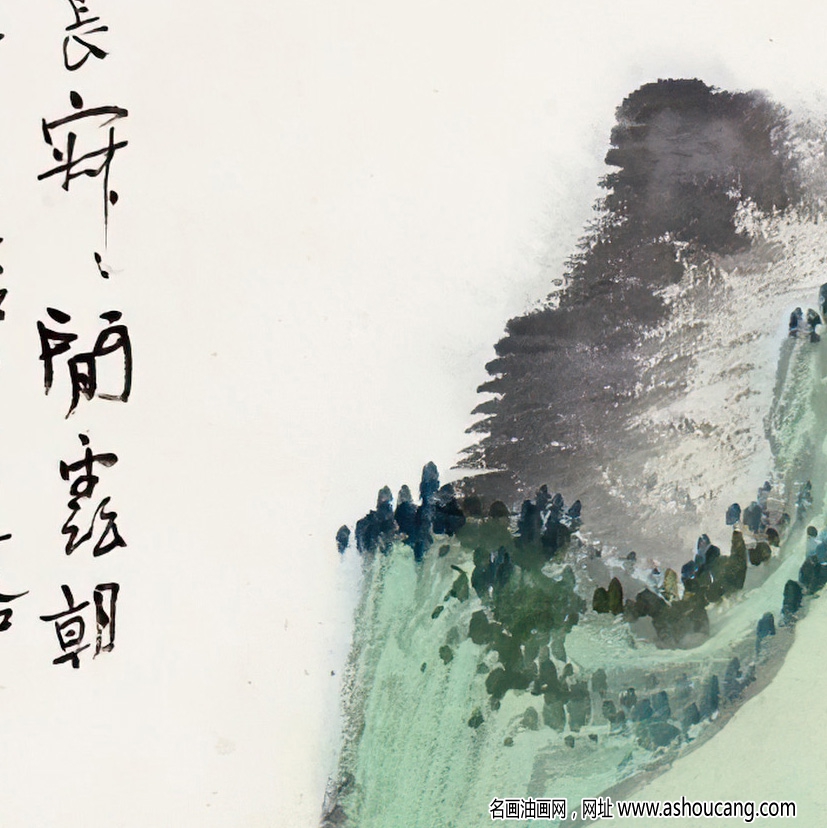 長寂〻閒雲朝
名画油画网，网址 www.ashoucang.com